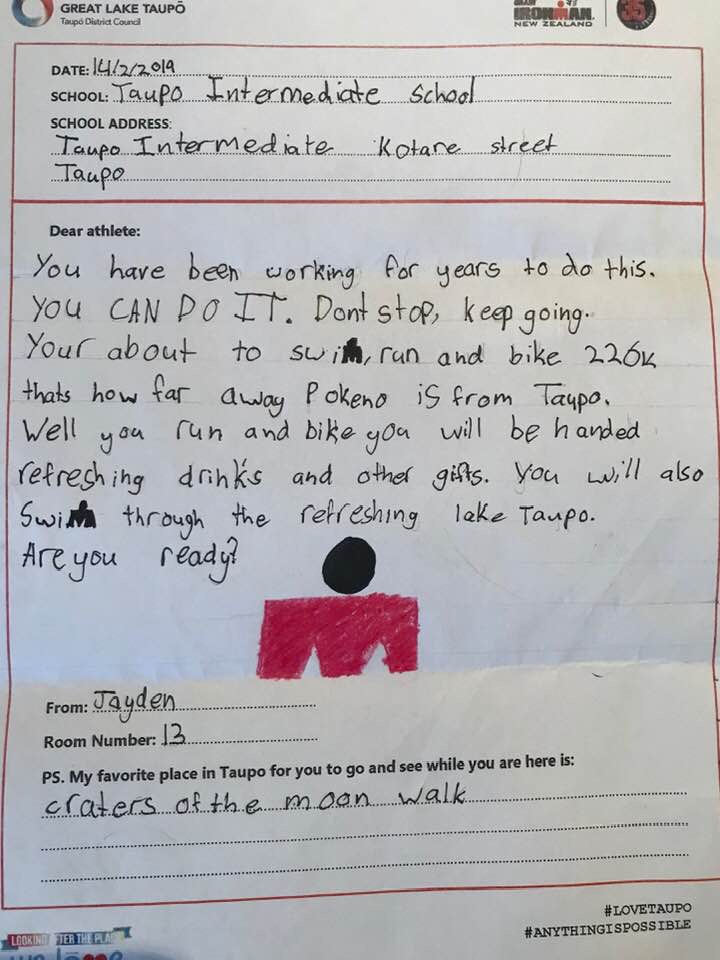 GREAT LAKE TAUPŌ
Taupō District Council
IRONMAN
NEW ZEALAND
35
DATE: 14/2/2019
SCHOOL: Taupo Intermediate school
SCHOOL ADDRESS:
Taupo Intermediate Kotare street
Taupo
Dear athlete:
You have been working for years to do this.
YOU CAN DO IT. Dont stop, keep going.
Your about to swim, run and bike 226k
thats how far away Pokeno is from Taupo.
Well you run and bike you will be handed
refreshing drinks and other gifts. You will also
Swim through the refreshing lake Taupo.
Are you ready?
From: Jayden
Room Number: 13
PS. My favorite place in Taupo for you to go and see while you are here is:
craters of the moon walk
#LOVETAUPO
#ANYTHINGISPOSSIBLE